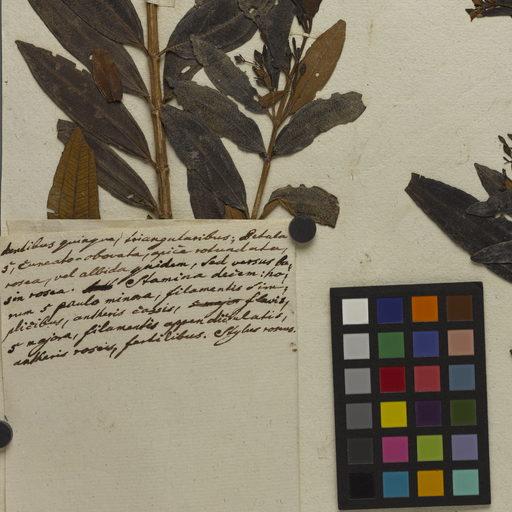 dentibus quinque, triangularibus; Petala
5, cuneato-obovata, apice rotundata,
rosea, vel albida quidem, sed versus ba,
sin rosea. Stamina decem: ho,
rum 5 paulo minora, filamentis sim,
plicibus, antheris cassis, flavis,
5 majora, filamentis appendiculatis,
antheris roseis, fertilibus. Stylus roseus.